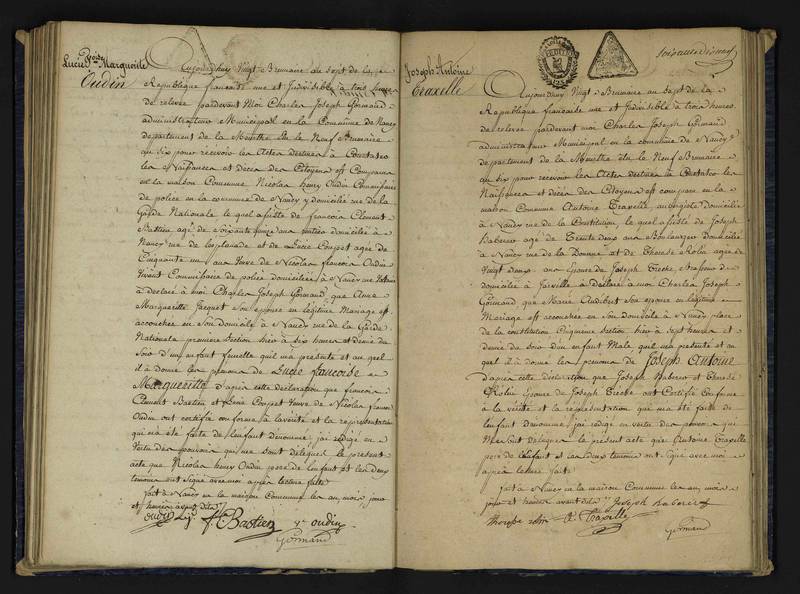 Lucie foise Marguerite
Oudin
Aujourd'huy Vingt Brumaire au Sept de la
Republique françoise une et Indivisible à trois heures
de relevée pardevant Moi Charles Joseph Gormand
administrateur Municipal en la Commune de Nancy
departement de la Meurthe Elu le Neuf Brumaire
an six pour recevoir les Actes destinés à Constater
les Naissances et décès des Citoyens est Comparu
en la maison Commune Nicolas henry Oudin Commissaire
de police en la commune de Nancy y domiciliée rue de la
Garde Nationale lequel assisté de francois Clement
Bastien agé de Soixante ans rentier domicilié à
Nancy rue de l'esplanade et de Lucie Coupet agée de
Cinquante un ans Veuve de Nicolas francois Oudin
Vivant Commissaire de police domiciliée à Nancy rue
a déclaré à moi Charles Joseph Gormand que Anne
Marguerite Jacquet Son épouse en légitime Mariage est
accouchée en Son domicile à Nancy rue de la Garde
Nationale premiere Section hier à six heures et demie du
Soir d'un enfant femelle qu'il m'a présenté et au quel
il a donné les prenoms de Lucie francoise
Marguerite d'après cette déclaration que francois
Clement Bastien et Lucie Coupet Veuve de Nicolas francois
Oudin ont certifié conforme à la vérité et la représentation
qui m'a été faite de l'enfant dénommé j'ai rédigé en
Vertu des pouvoirs qui me sont délégués le présent
acte que Nicolas henry Oudin pere de l'enfant et les deux
temoins ont signé avec moi après lecture faite
fait à Nancy en la maison Commune les an, mois, jour
et heures avant dits
oudin f. Bastien Ve oudin
Gormand
Joseph Antoine
Traxelle
Aujourd'huy Vingt Brumaire an Sept de la
Republique françoise une et Indivisible à trois heures
de relevée pardevant moi Charles Joseph Gormand
administrateur Municipal en la commune de Nancy
departement de la Meurthe élu le Neuf Brumaire
an six pour recevoir les Actes destinés à Constater les
Naissances et décès des Citoyens est comparu en la
maison Commune Antoine Traxelle domicilié
à Nancy rue de la Constitution, lequel assisté de Joseph
Haberer agé de Trente deux ans Boulanger Domicilié
à Nancy rue de la Douane et de Therese Rolin agée de
Vingt deux ans épouse de Joseph
domicilié à Jarville a Déclaré à moi Charles Joseph
Gormand que Marie Audibert Son épouse en légitime
Mariage est accouchée en Son domicile à Nancy place
de la constitution Cinquieme Section hier à Sept heures et
demie du soir d'un enfant Male qu'il m'a présenté et au
quel il a donné les prenoms de Joseph Antoine
d'après cette déclaration que Joseph Haberer et Therese
Rolin épouse de Joseph ont Certifié Conforme
à la vérité et la représentation qui m'a été faite de
l'enfant dénommé, j'ai rédigé en vertu des pouvoirs qui
Me sont délégués le présent acte que Antoine Traxelle
pere de l'enfant et les deux temoins ont signé avec moi
après lecture faite
fait à Nancy en la maison Commune les an, mois
jour et heures avant dits Joseph haberer
therese rolin A Traxelle
Gormand